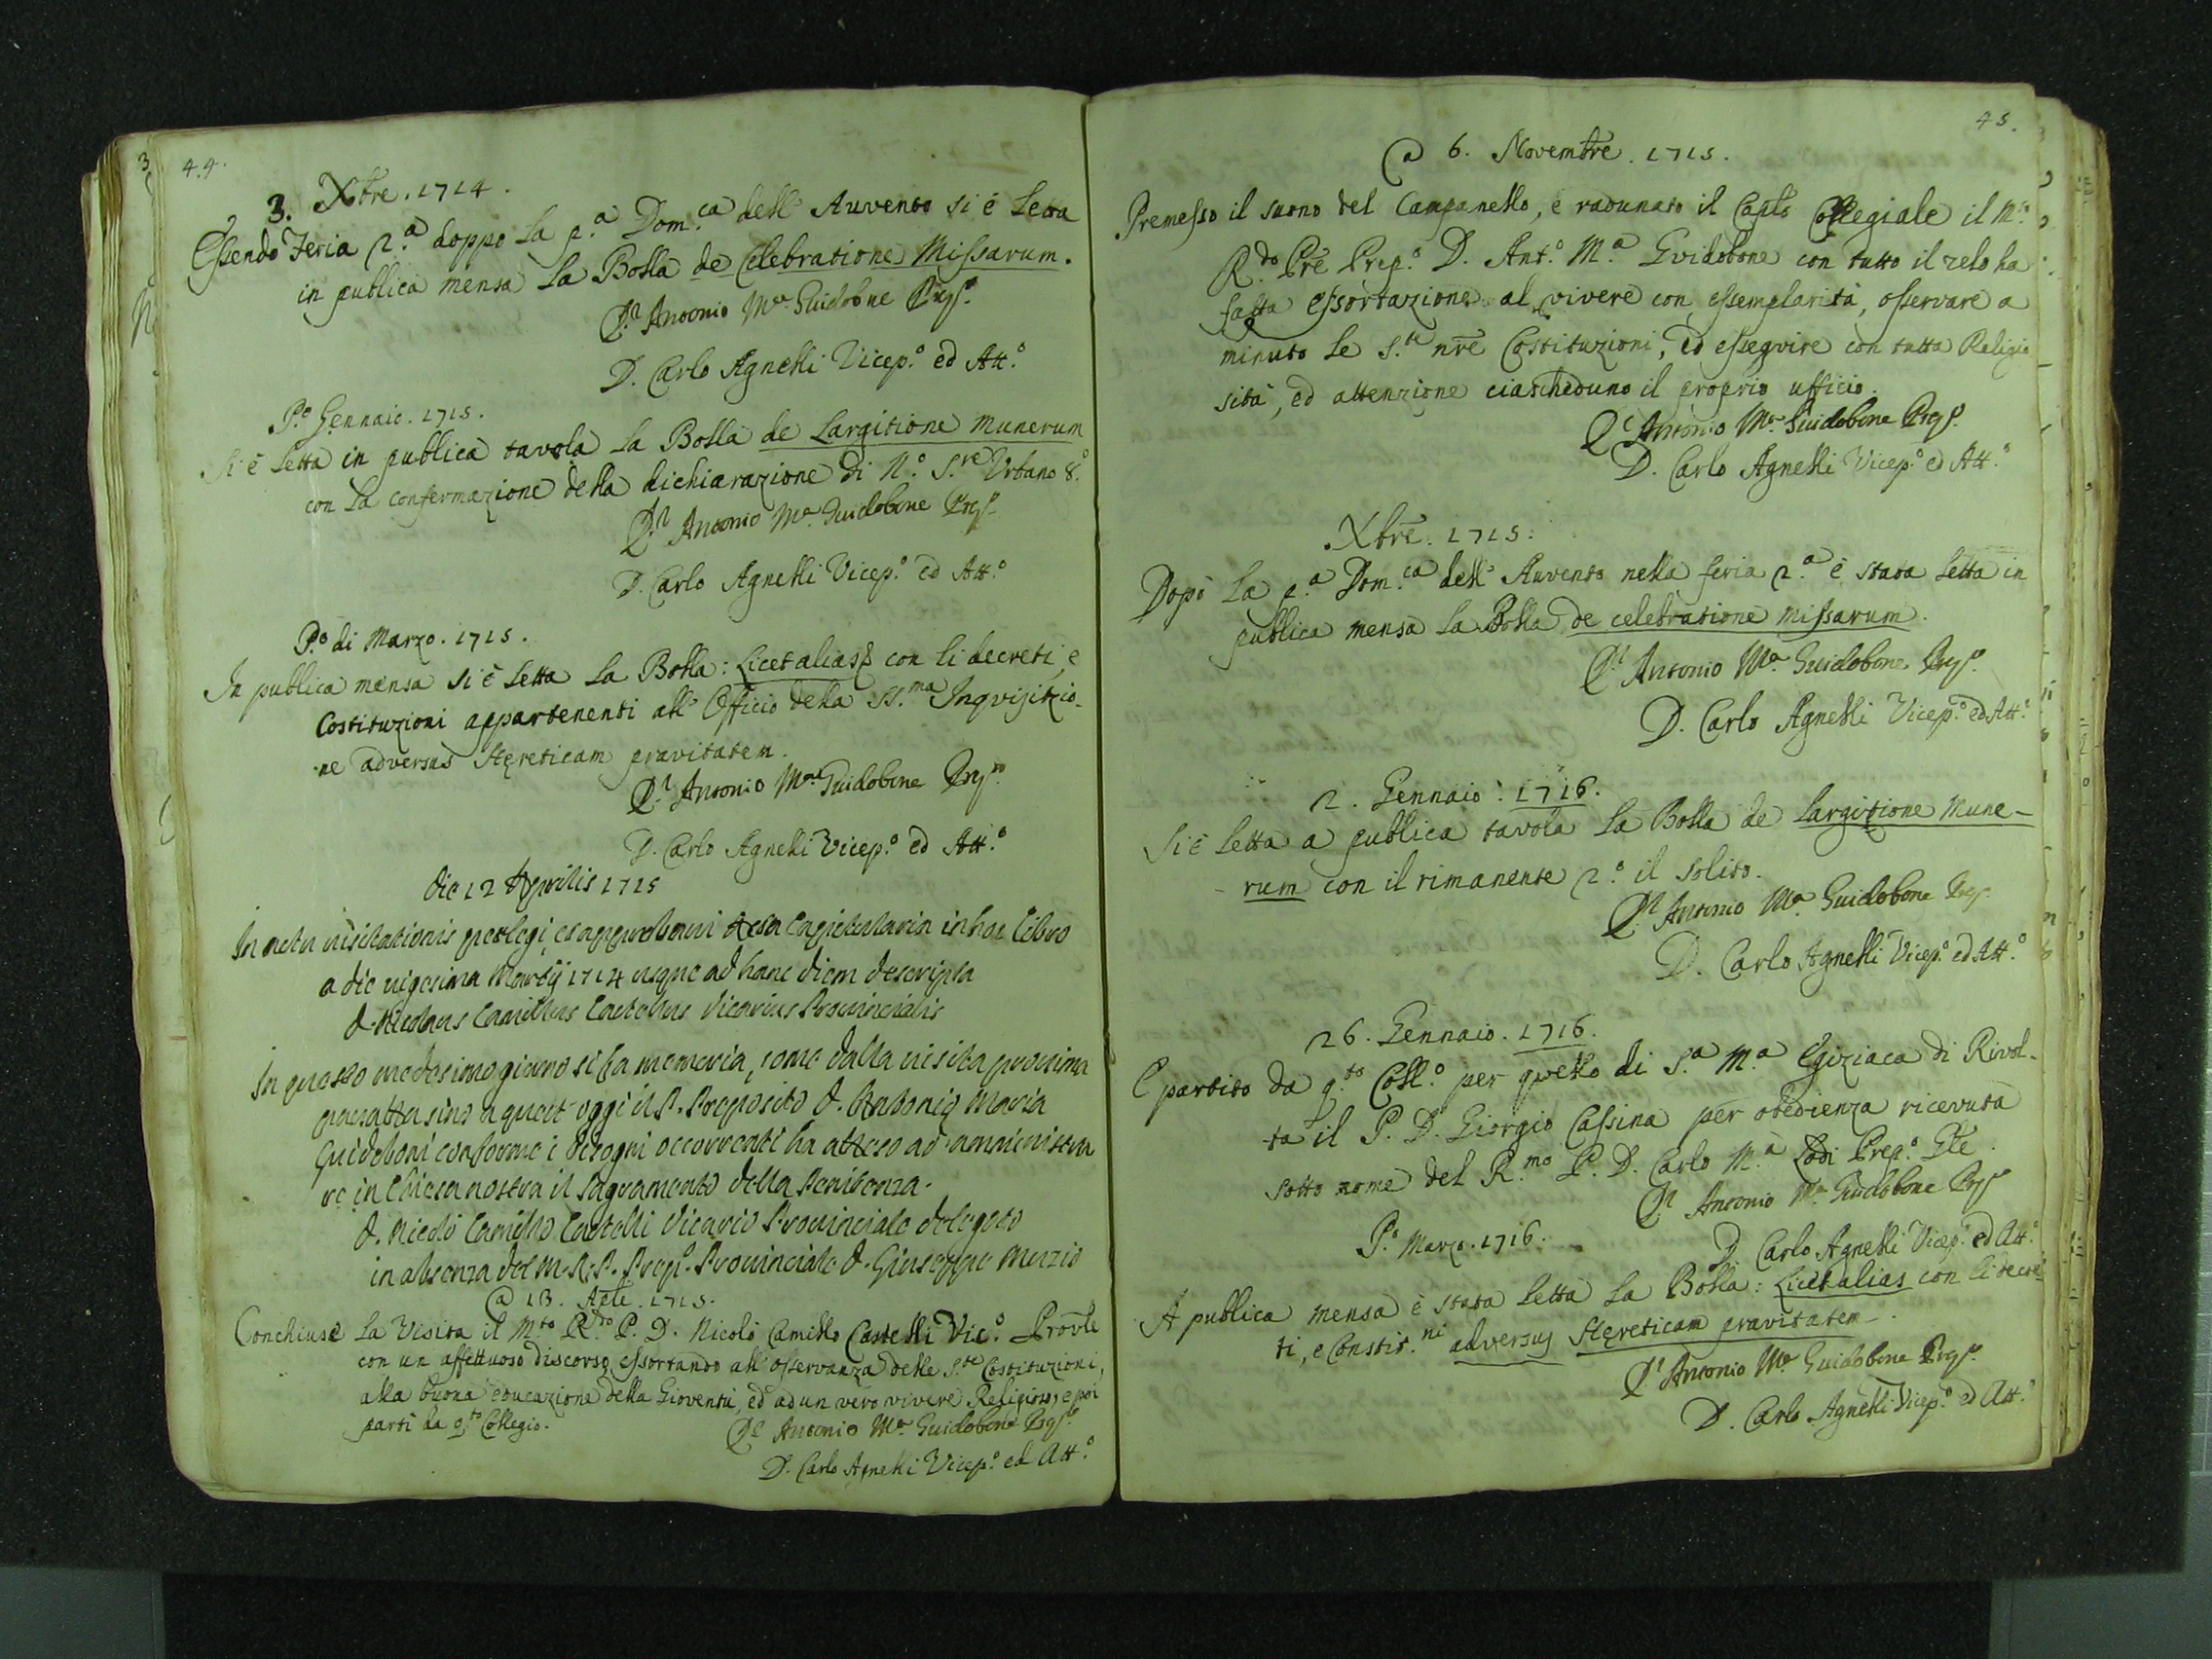 44.
3. Xbre. 1714.
Essendo Feria 2.a doppo la p.a Dom.ca dell' Auvento si è letta
in publica mensa la Bolla de Celebratione Missarum.
D. Antonio M.a Guidobone Prep.o
D. Carlo Agnelli Vicep.o ed Att.o
P.o Gennaio. 1715.
Si è letta in publica tavola la Bolla de Largitione Munerum
con la confermazione della dichiarazione di N.o S.re Urbano 8.o
D. Antonio M.a Guidobone Prep.o
D. Carlo Agnelli Vicep.o ed Att.o
P.o di Marzo. 1715.
In publica mensa si è letta la Bolla: Licet alias con li decreti, e
Costituzioni appartenenti all' Officio della SS.ma Inquisizio-
ne adversus Hęreticam pravitatem.
D. Antonio M.a Guidobone Prep.o
D. Carlo Agnelli Vicep.o ed Att.o
Die 12 Aprilis 1715
In actu visitationis perlegi, et approbavi Acta Capitularia in hoc libro
a die vigesima Martij 1714 usque ad hanc diem descripta
D. Nicolaus Camillus Castellus Vicarius Provincialis
In questo medesimo giorno si fa memoria, come dalla visita prossima
passata sino a quest' oggi il P. Preposito D. Antonio Maria
Guidoboni conforme i bisogni occorrenti ha atteso ad amministra
re in Chiesa nostra il Sagramento della Penitenza.
D. Nicolò Camillo Castelli Vicario Provinciale delegato
in absenza del M. R. P. Prep.o Provinciale D. Giuseppe Muzio
a 13. Aple. 1715.
Conchiuse la Visita il M.to R.do P. D. Nicolò Camillo Castelli Vic.o Provle
con un affettuoso discorso, essortando all' osservanza delle S.te Costituzioni,
alla buona educazione della Gioventù, ed ad un vero vivere Religioso, e poi
partì da q.to Collegio.
D. Antonio M.a Guidobone Prep.o
D. Carlo Agnelli Vicep.o ed Att.o
45.
a 6. Novembre. 1715.
Premesso il suono del Campanello, e radunato il Caplo Collegiale il M.to
R.do Pre Prep.o D. Ant.o M.a Gvidobone con tutto il zelo ha
fatta essortazione al vivere con essemplarità, osservare a
minuto le S.te nre Costituzioni, ed essegvire con tutta Religio
sità, ed attenzione ciascheduno il proprio ufficio.
D. Antonio M.a Guidobone Prep.o
D. Carlo Agnelli Vicep.o ed Att.o
Xbre. 1715.
Dopò la p.a Dom.ca dell' Auvento nella feria 2.a è stata letta in
publica mensa la Bolla de celebratione Missarum.
D. Antonio M.a Guidobone Prep.o
D. Carlo Agnelli Vicep.o ed Att.o
2. Gennaio. 1716.
Si è letta a publica tavola la Bolla de Largitione Mune-
rum con il rimanente 2.o il solito.
D. Antonio M.a Guidobone Prep.
D. Carlo Agnelli Vicep.o ed Att.o
26. Gennaio. 1716.
E partito da q.to Coll.o per qvello di S.a M.a Egiziaca di Rivol-
ta il P. D. Giorgio Cassina per obedienza ricevuta
sotto nome del R.mo P. D. Carlo M.a Lodi Prep.o Gle.
D. Antonio M.a Guidobone Prep.o
D. Carlo Agnelli Vicep.o ed Att.o
P.o Marzo. 1716.
A publica mensa è stata letta la Bolla: Licet alias con li decre
ti, e Constit.ni adversus Hęreticam pravitatem.
D. Antonio M.a Guidobone Prep.o
D. Carlo Agnelli Vicep.o ed Att.o